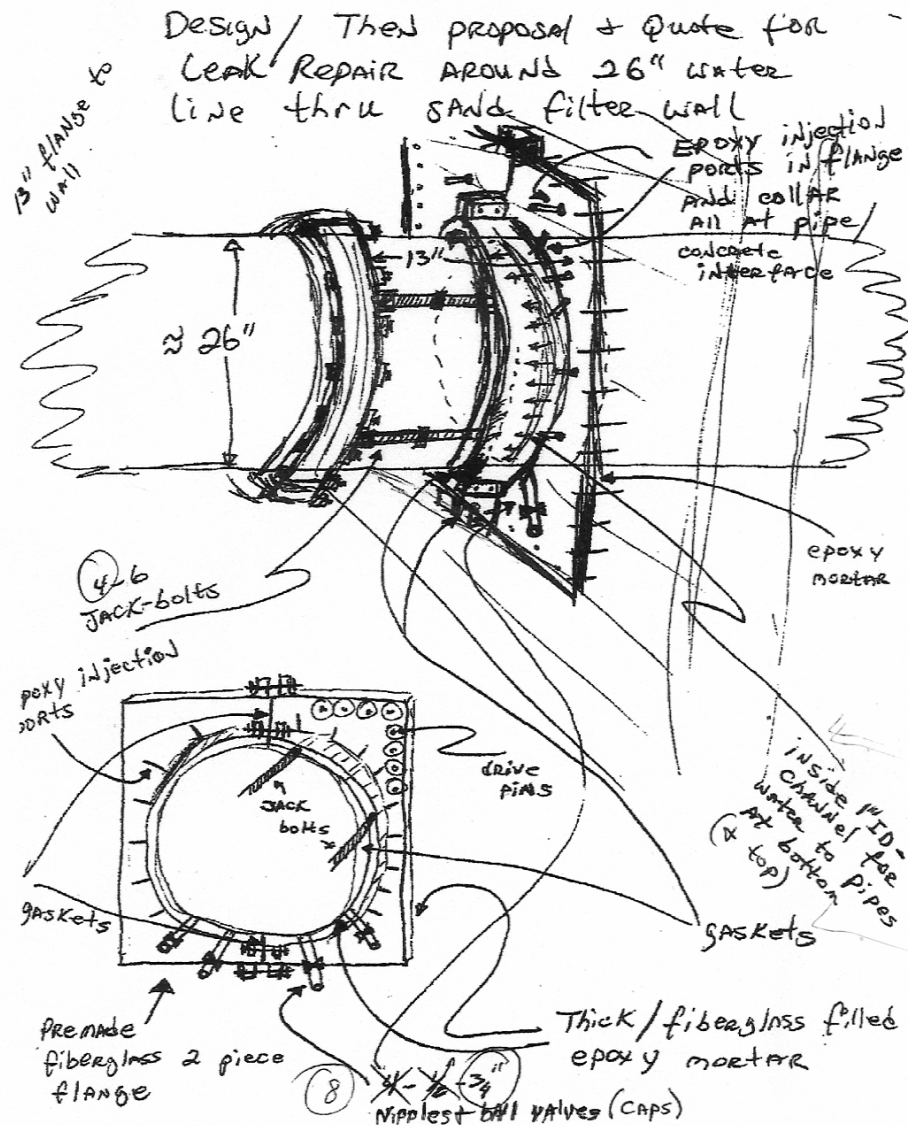 Design / Then proposal & Quote for
Leak Repair Around 26" water
line thru sand filter wall
13" flange to
wall
Epoxy injection
ports in flange
and collar
all at pipe/
concrete
interface
13"
≈ 26"
epoxy
mortar
4-6
Jack-bolts
poxy injection
orts
drive
pins
Jack
bolts
inside 1" ID-
channel for
water to pipes
at bottom
(& top)
gaskets
gaskets
Premade
fiberglass 2 piece
flange
Thick/fiberglass filled
epoxy mortar
8 4 - 1/2 - 3/4"
Nipples + ball valves (caps)